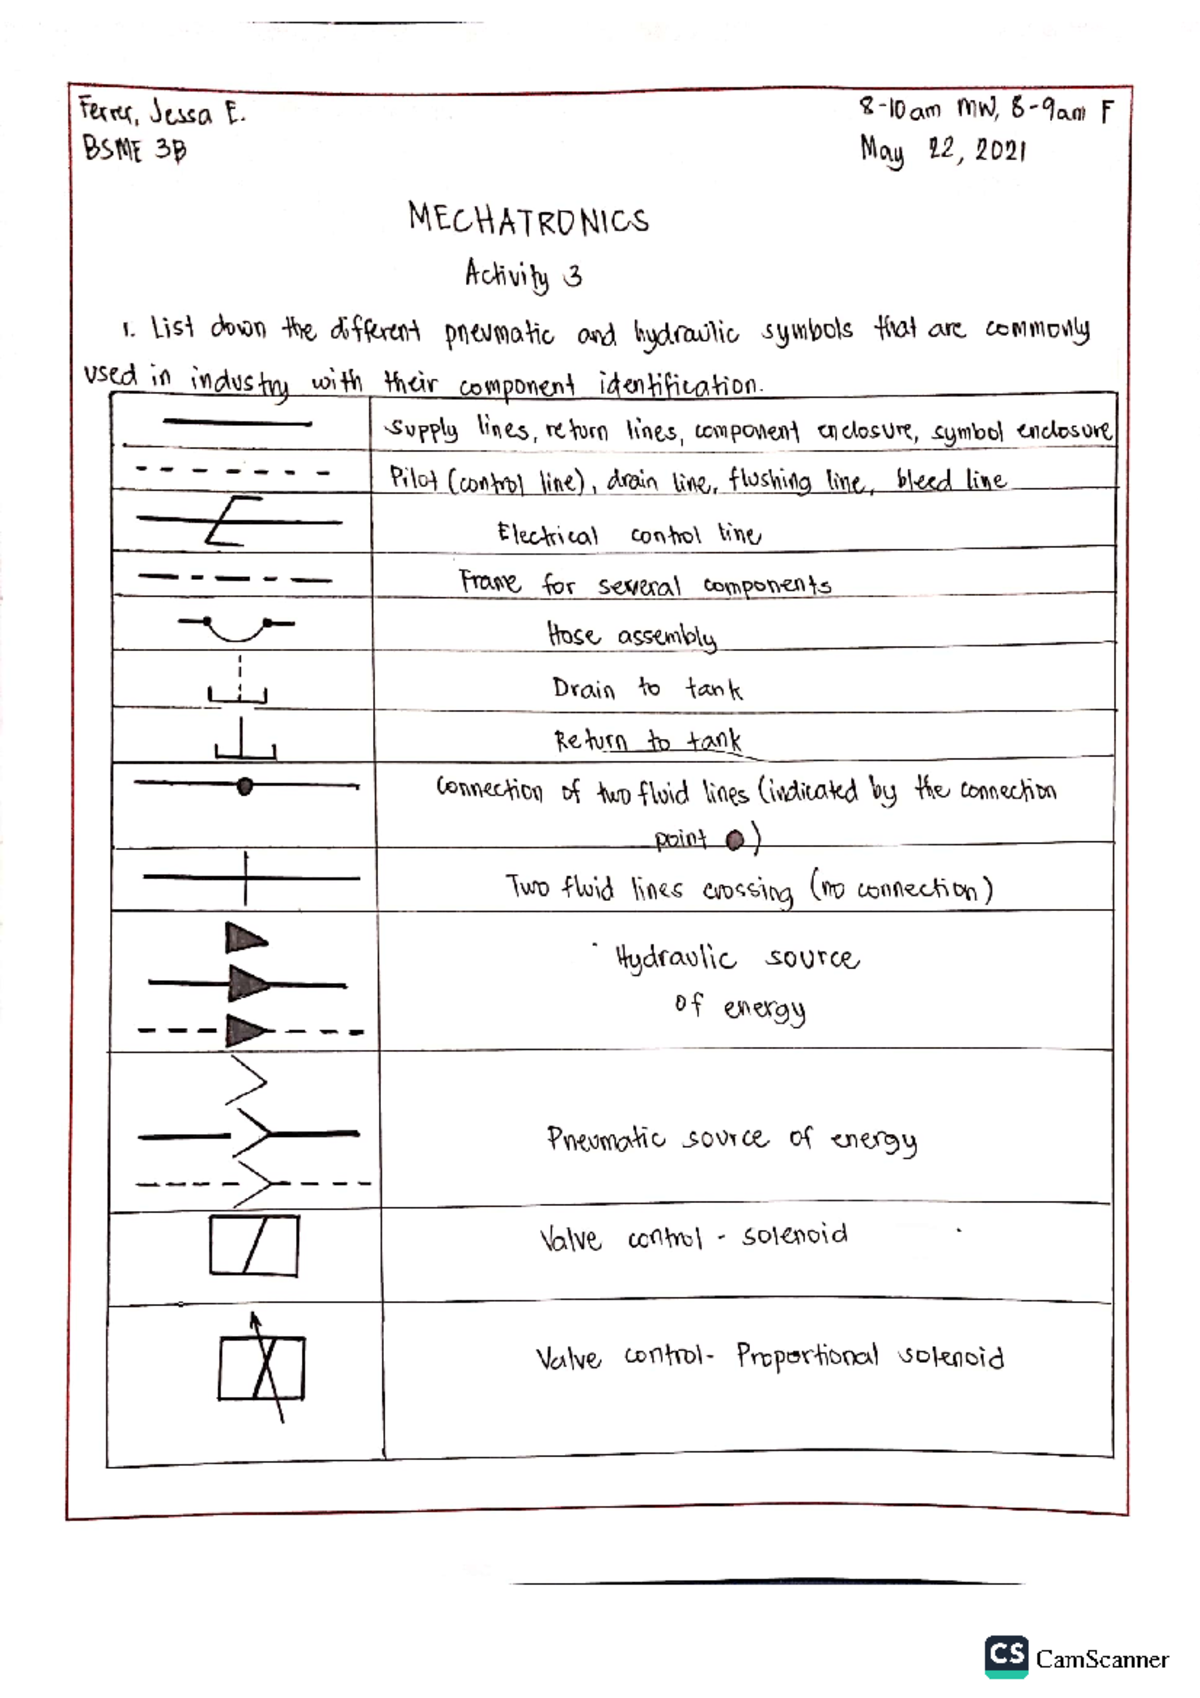 Ferrer, Jessa E.
8-10am MW, 8-9am F
BSME 3B
May 22, 2021
MECHATRONICS
Activity 3
1. List down the different pneumatic and hydraulic symbols that are commonly
used in industry with their component identification.
Supply lines, return lines, component enclosure, symbol enclosure
Pilot (control line), drain line, flushing line, bleed line
Electrical control line
Frame for several components
Hose assembly
Drain to tank
Return to tank
Connection of two fluid lines (indicated by the connection
point ●)
Two fluid lines crossing (no connection)
Hydraulic source
of energy
Pneumatic source of energy
Valve control - solenoid
Valve control- Proportional solenoid
CS CamScanner